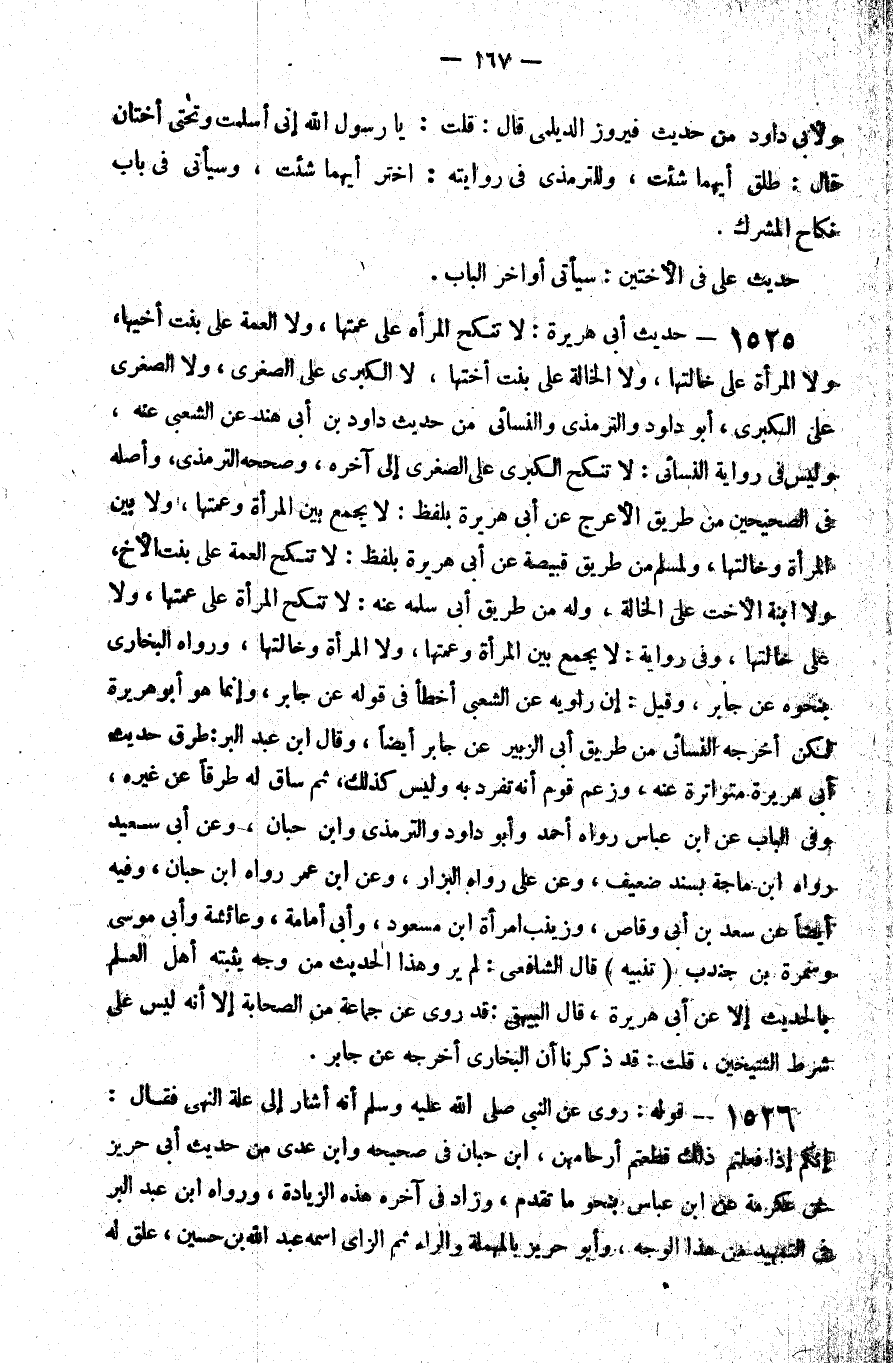 — ١٦٧ —
ولأبى داود من حديث فيروز الديلمى قال : قلت : يا رسول الله إنى أسلمت وتحتى أختان
قال : طلق أيهما شئت ، وللترمذى فى روايته : اختر أيهما شئت ، وسيأتى فى باب
نكاح المشرك .
حديث على فى الأختين : سيأتى أواخر الباب .
١٥٢٥ — حديث أبى هريرة : لا تنكح المرأه على عمتها ، ولا العمة على بنت أخيها ،
ولا المرأة على خالتها ، ولا الخالة على بنت أختها ، لا الكبرى على الصغرى ، ولا الصغرى
على الكبرى ، أبو داود والترمذى والنسائى من حديث داود بن أبى هند عن الشعبى عنه ،
وليس فى رواية النسائى : لا تنكح الكبرى على الصغرى إلى آخره ، وصححه الترمذى ، وأصله
فى الصحيحين من طريق الأعرج عن أبى هريرة بلفظ : لا يجمع بين المرأة وعمتها ، ولا بين
المرأة وخالتها ، ولمسلم من طريق قبيصة عن أبى هريرة بلفظ : لا تنكح العمة على بنت الأخ ،
ولا ابنة الأخت على الخالة ، وله من طريق أبى سلمه عنه : لا تنكح المرأة على عمتها ، ولا
على خالتها ، وفى رواية : لا يجمع بين المرأة وعمتها ، ولا المرأة وخالتها ، ورواه البخارى
بنحوه عن جابر ، وقيل : إن راويه عن الشعبى أخطأ فى قوله عن جابر ، وإنما هو أبو هريرة
لكن أخرجه النسائى من طريق أبى الزبير عن جابر أيضاً ، وقال ابن عبد البر : طرق حديث
أبى هريرة متواترة عنه ، وزعم قوم أنه تفرد به وليس كذلك ، ثم ساق له طرقاً عن غيره ،
وفى الباب عن ابن عباس رواه أحمد وأبو داود والترمذى وابن حبان ، وعن أبى سعيد
رواه ابن ماجة بسند ضعيف ، وعن على رواه البزار ، وعن ابن عمر رواه ابن حبان ، وفيه
أيضاً عن سعد بن أبى وقاص ، وزينب امرأة ابن مسعود ، وأبى أمامة ، وعائشة وأبى موسى
وسمرة بن جندب ( تنبيه ) قال الشافعى : لم يروهذا الحديث من وجه يثبته أهل العلم
بالحديث إلا عن أبى هريرة ، قال البيهقى : قد روى عن جماعة من الصحابة إلا أنه ليس على
شرط الشيخين ، قلت : قد ذكرنا أن البخارى أخرجه عن جابر .
١٥٢٦ — قوله : روى عن النبى صلى الله عليه وسلم أنه أشار إلى علة النهى فقال :
إنكم إذا فعلتم ذلك قطعتم أرحامهن ، ابن حبان فى صحيحه وابن عدى من حديث أبى حريز
عن عكرمة عن ابن عباس بنحو ما تقدم ، وزاد فى آخره هذه الزيادة ، ورواه ابن عبد البر
فى التمهيد من هذا الوجه ، وأبو حريز بالمهملة والراء ثم الزاى اسمه عبد الله بن حسين ، علق له